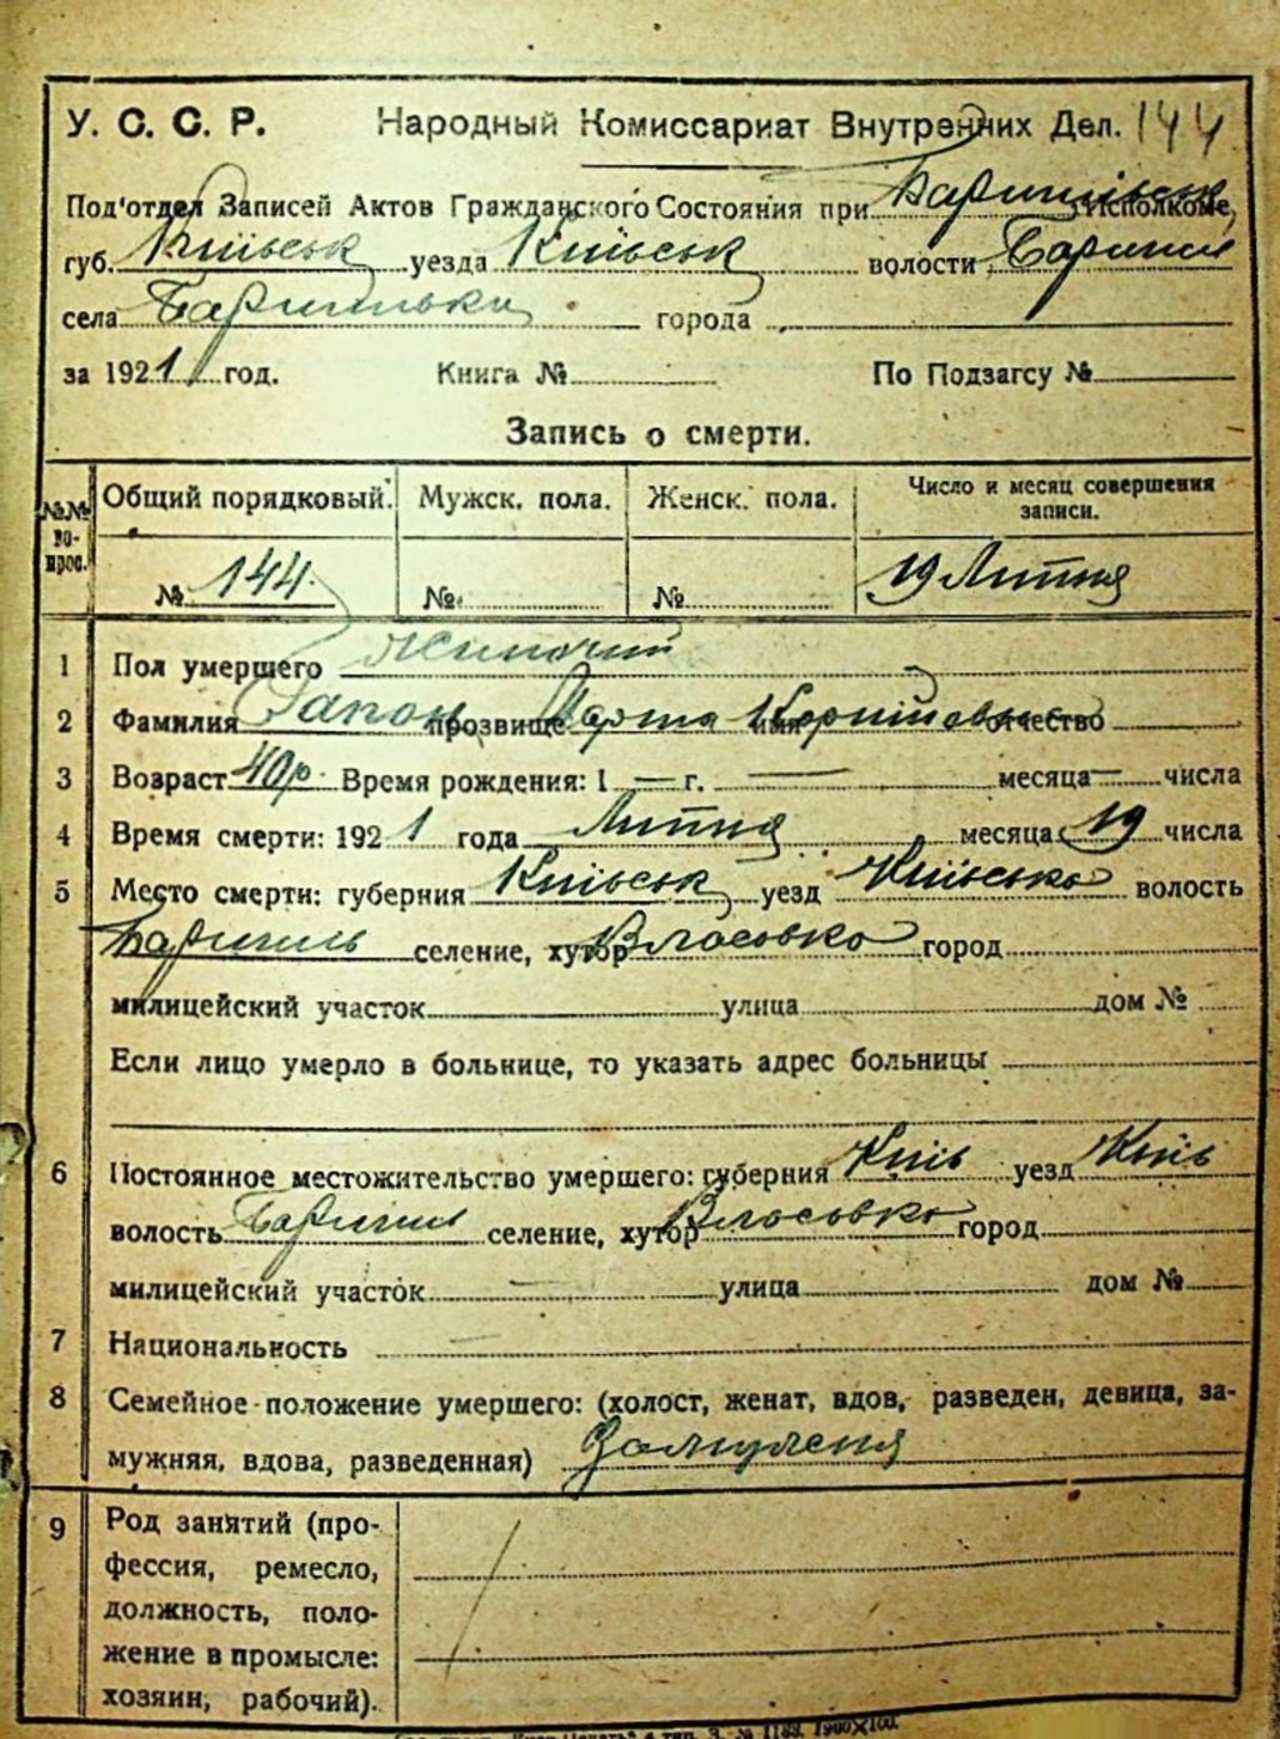 У. С. С. Р. Народный Комиссариат Внутренних Дел. 144
Под'отдел Записей Актов Гражданского Состояния при Исполкоме,
губ. Київськ уезда Київськ волости Баришп
села города
за 1921 год. Книга № По Подзагсу №
Запись о смерти.
№№ во-прос. Общий порядковый. Мужск. пола. Женск. пола. Число и месяц совершения записи.
№ 144. № № 19 Липня
1 Пол умершего Жиночий
2 Фамилия Гапон прозвище Марта имя отчество
3 Возраст 40 р. Время рождения: 1 — г. — месяца — числа
4 Время смерти: 1921 года Липня месяца 19 числа
5 Место смерти: губерния Київськ уезд Київсько волость
Баришпль селение, хутор Власовко город
милицейский участок улица дом №
Если лицо умерло в больнице, то указать адрес больницы
6 Постоянное местожительство умершего: губерния Київ уезд Київ
волость Баришпл селение, хутор Власовко город
милицейский участок — улица дом №
7 Национальность —
8 Семейное положение умершего: (холост, женат, вдов, разведен, девица, за-
мужняя, вдова, разведенная) Замужня
9 Род занятий (про-
фессия, ремесло,
должность, поло-
жение в промысле:
хозяин, рабочий).